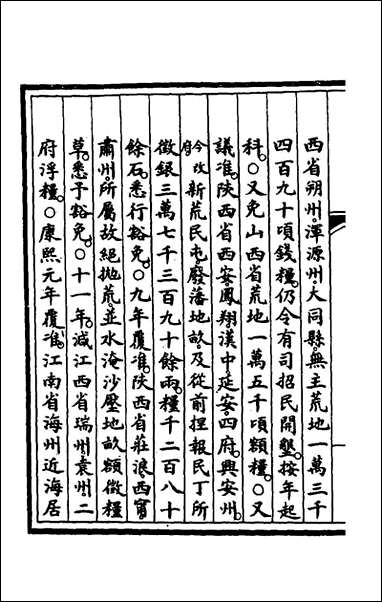 西省朔州。渾源州。大同縣無主荒地一萬三千
四百九十頃錢糧。仍令有司招民開墾。按年起
科。○又免山西省荒地一萬五千頃額糧。○又
議准。陜西省西安。鳳翔。漢中。延安。四府。興安州。
今改府新荒民屯。廢藩地畝。及從前捏報民丁所
徵銀三萬七千三百九十餘兩。糧千二百八十
餘石。悉行豁免。○九年覆准。陜西省莊浪。西寧
肅州。所屬故絕拋荒。並水淹沙壓地畝。額徵糧
草。悉予豁免。○十一年。減江西省瑞州。袁州。二
府浮糧。○康熙元年覆准。江南省海州近海居